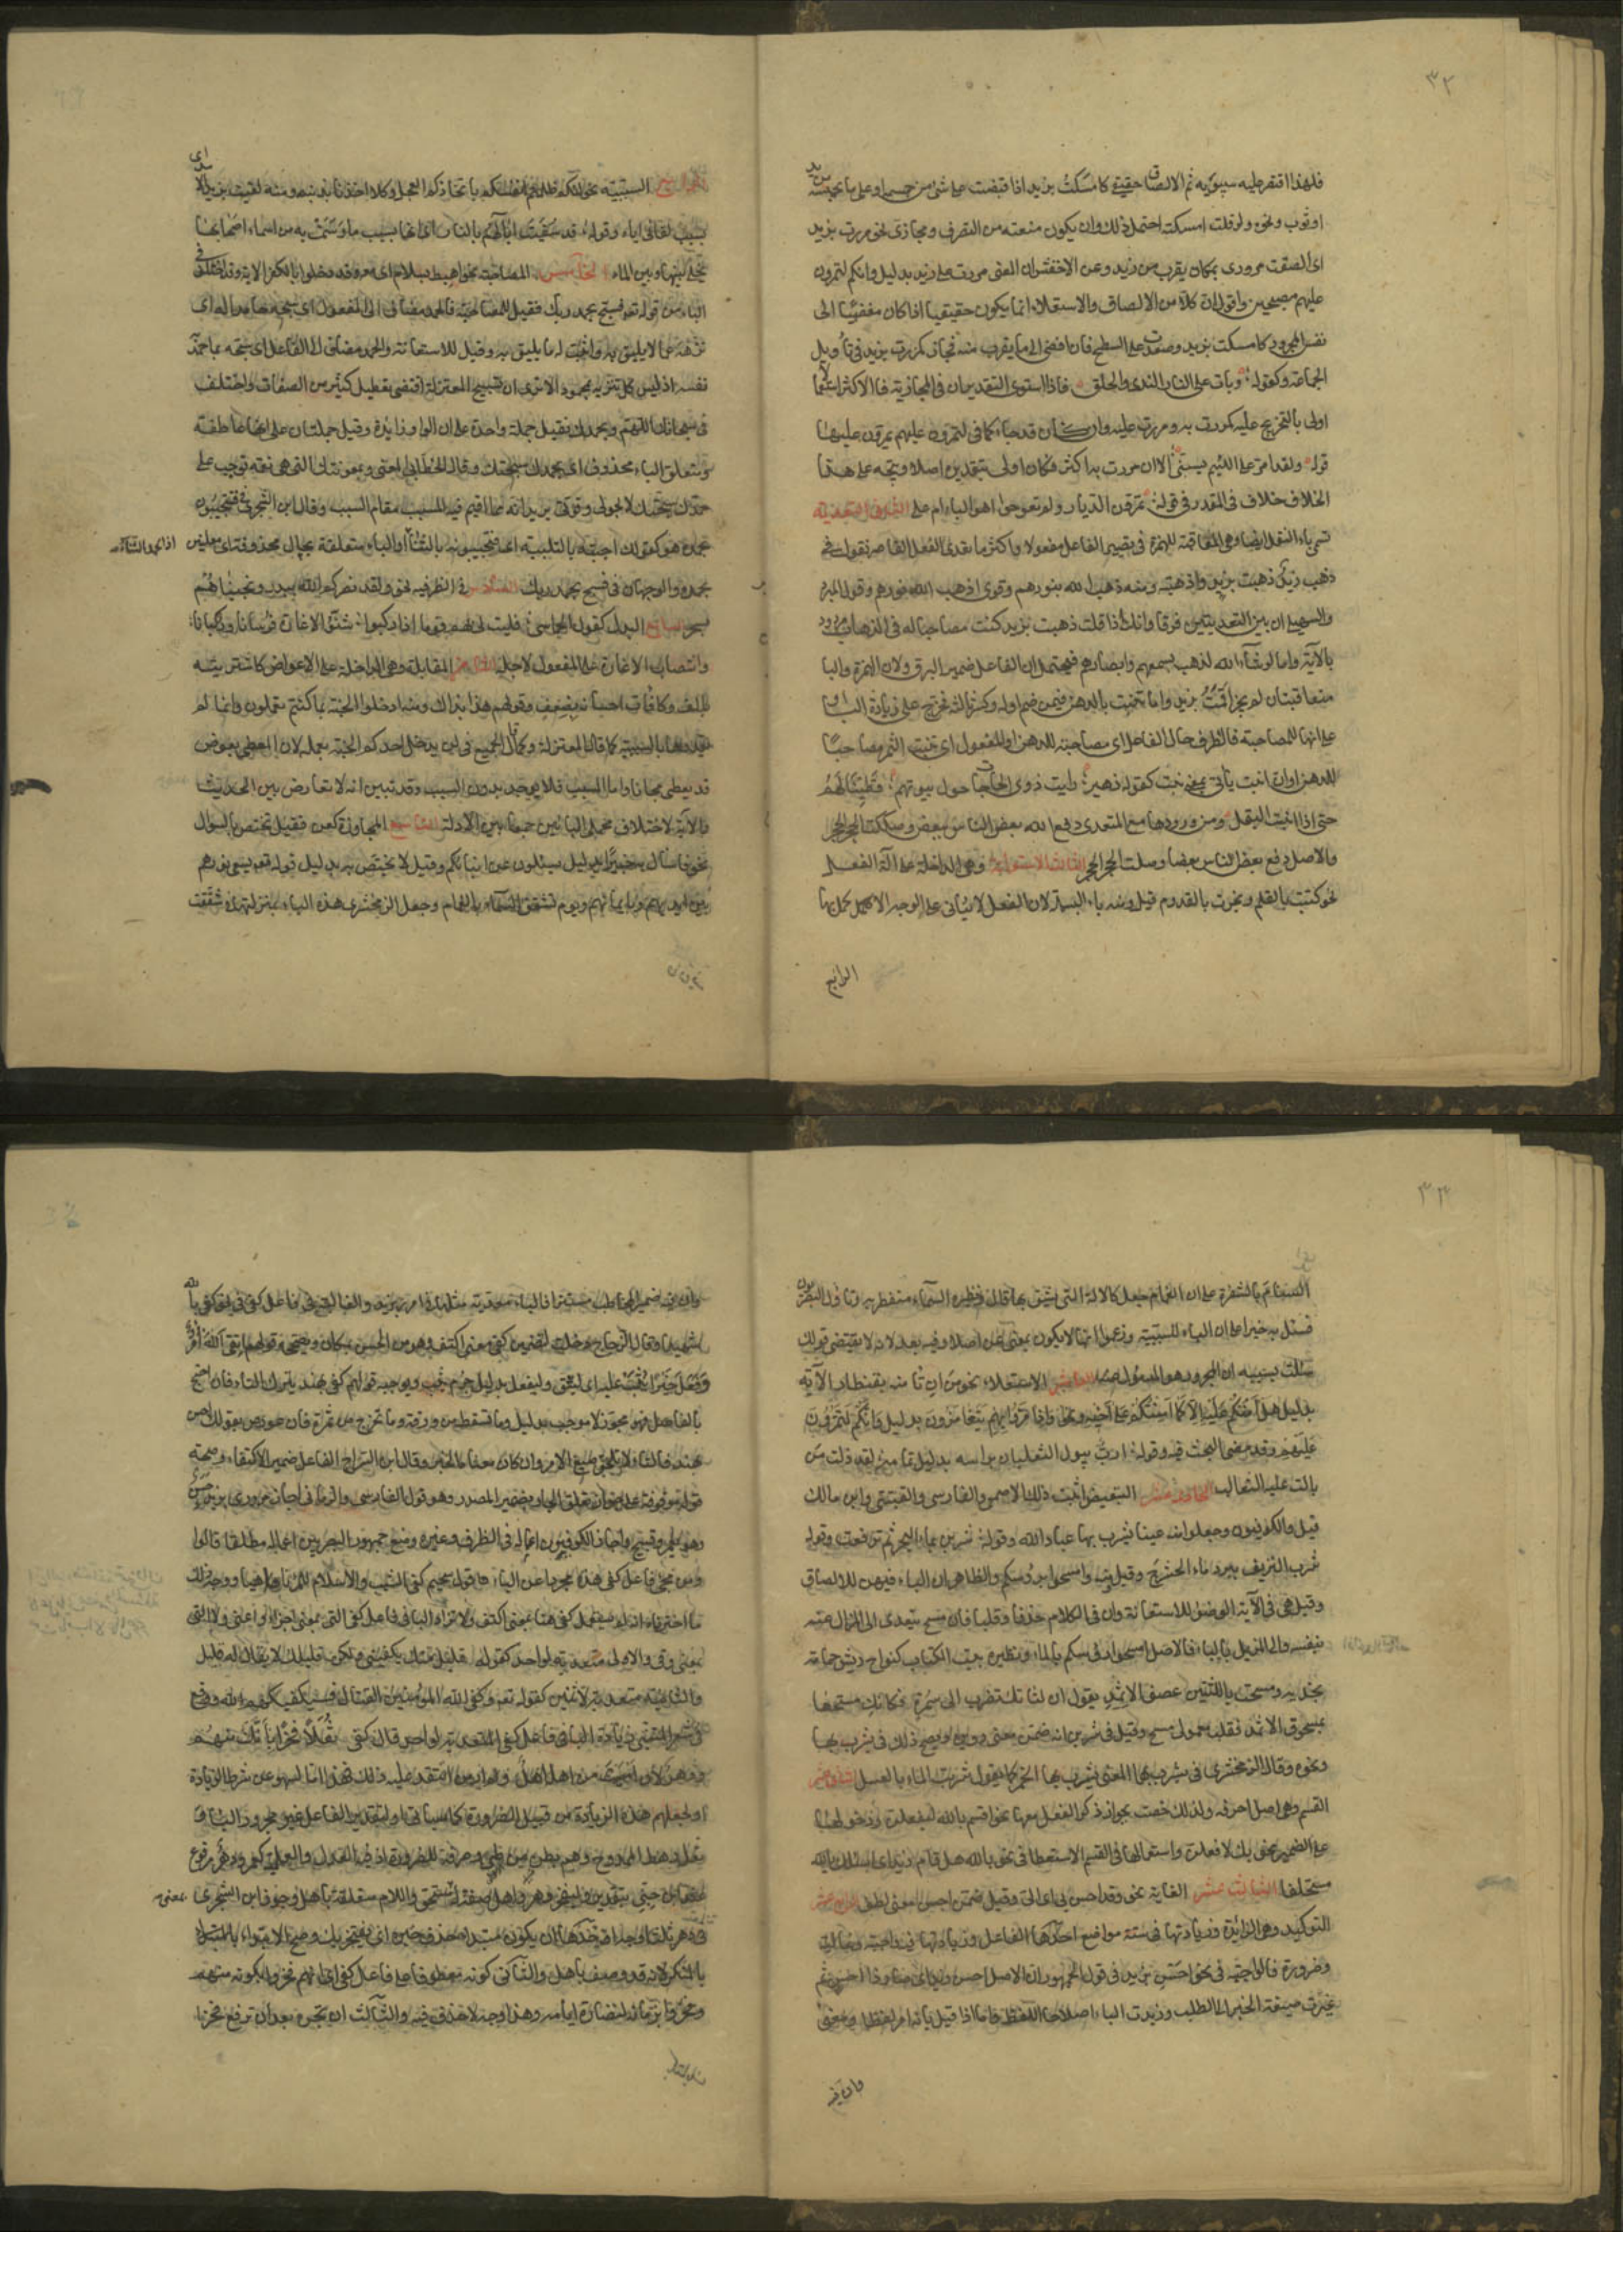 ٣٢
فلهذا اقتصر عليه سيبويه ثم الالصاق حقيقي كامسكت بزيد اذا قبضت على شئ من جسمه او على ما يحبسه من يد
او ثوب ونحوه ولو قلت امسكته احتمل ذلك وان يكون منعته من التصرف ومجازى نحو مررت بزيد
اى الصقت مرورى بمكان يقرب من زيد وعن الاخفش ان المعنى مررت على زيد بدليل وانكم لتمرون
عليهم مصبحين واقول ان كلا من الالصاق والاستعلاء انما يكون حقيقيا اذا كان مفضيا الى
نفس المجرور كامسكت بزيد وصعدت على السطح فان افضى الى ما يقرب منه فمجاز كمررت بزيد في تأويل
الجماعة وكقوله وبات على النار الندى والمحلق فاذا استوى التقديران في المجازية فالاكثر استعمالا
اولى بالتخريج عليه كمررت به ومررت عليه وان كان قد جاء كما في لتمرون عليهم يمرون عليها
قوله ولقد امر على اللئيم يسبني الا ان مررت به اكثر فكان اولى بتقديره اصلا ويتجه على هذا
الخلاف خلاف في المقدر في قوله تمرون الديار ولم تعوجوا اهو الباء ام على الثاني التعدية
تسمى باء النقل ايضا وهى المعاقبة للهمزة في تصيير الفاعل مفعولا واكثر ما تعدى الفعل القاصر تقول في
ذهب زيد ذهبت بزيد واذهبته ومنه ذهب الله بنورهم وقرئ اذهب الله نورهم وقول المبرد
والسهيلى ان بين التعديتين فرقا وانك اذا قلت ذهبت بزيد كنت مصاحبا له في الذهاب مردود
بالآية واما لو شاء الله لذهب بسمعهم وابصارهم فيحتمل ان الفاعل ضمير البرق ولان الهمزة والباء
متعاقبتان لم يجز اقمت بزيد واما تنبت بالدهن فيمن ضم اوله وكسر ثالثه فخرج على زيادة الباء او
على انها للمصاحبة فالظرف حال الفاعل اى مصاحبة للدهن او المفعول اى تنبت الثمر مصاحبا
للدهن او ان انبت يأتى بمعنى نبت كقوله زهير رايت ذوى الحاجات حول بيوتهم قطينا لهم
حتى اذا انبت البقل ومن ورودها مع المتعدى دفع الله بعض الناس ببعض وصككت الحجر بالحجر
والاصل دفع بعض الناس بعضا وصك الحجر الحجر الثالث الاستعانة وهى الداخلة على آلة الفعل
نحو كتبت بالقلم ونجرت بالقدوم قيل ومنه باء البسملة لان الفعل لا يتأتى على الوجه الاكمل الا بها
الرابع
الرابع السببية نحو انكم ظلمتم انفسكم باتخاذكم العجل وكلا اخذنا بذنبه ومنه لقيت بزيد الاسد اى
بسبب لقائى اياه وقوله قد سقيت آبالهم بالنار اى انها بسبب ما وسمت به من اسماء اصحابها
يخلى بينها وبين الماء الخامس المصاحبة نحو اهبط بسلام اى معه وقد دخلوا بالكفر الآية وقد اختلف في
الباء من قوله تعالى فسبح بحمد ربك فقيل للمصاحبة فالحمد مضاف الى المفعول اى سبحه حامدا له اى
نزهه عما لا يليق به واثبت له ما يليق به وقيل للاستعانة والحمد مضاف الى الفاعل اى سبحه بما حمد به
نفسه اذ ليس كل تنزيه بمحمود الا ترى ان تسبيح المعتزلة اقتضى تعطيل كثير من الصفات واختلف
في سبحانك اللهم وبحمدك فقيل جملة واحدة على ان الواو زائدة وقيل جملتان على انها عاطفة
ومتعلق الباء محذوف اى بحمدك سبحتك وقال الخطابى المعنى وبمعونتك التى هى نعمة توجب على
حمدك سبحتك لا بحولى وقوتى يريد انه مما اقيم فيه المسبب مقام السبب وقال ابن الشجرى في فتستجيبون
بحمده هو كقولك اجبته بالتلبية اى فتجيبونه بالثناء او الباء متعلقة بحال محذوفة اى معلنين
بحمده والوجهان في فسبح بحمد ربك السادس الظرفية نحو ولقد نصركم الله ببدر ونجيناهم
بسحر السابع البدل كقول الحماسى فليت لى بهم قوما اذا ركبوا شنوا الاغارة فرسانا وركبانا
وانتصاب الاغارة على المفعول لاجله الثامن المقابلة وهى الداخلة على الاعواض كاشتريته
بالف وكافأت احسانه بضعف وقولهم هذا بذاك ومنه ادخلوا الجنة بما كنتم تعملون وانما لم
نقدرها بالسببية كما قالت المعتزلة وكما قال الجميع في لن يدخل احدكم الجنة بعمله لان المعطى بعوض
قد يعطى مجانا واما المسبب فلا يوجد بدون السبب وقد تبين انه لا تعارض بين الحديث
والآية لاختلاف محملى البائين جمعا بين الادلة التاسع المجاوزة كعن فقيل تختص بالسؤال
نحو فاسأل به خبيرا بدليل يسئلون عن انبائكم وقيل لا تختص به بدليل قوله تعالى يسعى نورهم
بين ايديهم وبايمانهم ويوم تشقق السماء بالغمام وجعل الزمخشرى هذه الباء بمنزلتها في شققت
٣٣
السنام بالشفرة على ان الغمام جعل كالآلة التى يشق بها قال ونظيره السماء منفطر به وتأول البصريون
فسئل به خبيرا على ان الباء للسببية وزعموا انها لا تكون بمعنى عن اصلا وفيه بعد لانه لا يقتضى قولك
سئلت بسببه ان المجرور هو المسئول عنه العاشر الاستعلاء نحو من ان تأمنه بقنطار الآية
بدليل هل آمنكم عليه الا كما امنتكم على اخيه ونحو واذا مروا بهم يتغامزون بدليل وانكم لتمرون
عليهم وقد مضى البحث فيه وقوله ارب يبول الثعلبان برأسه بدليل تمامه لقد ذلت من
بالت عليه الثعالب الحادى عشر التبعيض اثبت ذلك الاصمعى والفارسى والقتيبى وابن مالك
قيل والكوفيون وجعلوا منه عينا يشرب بها عباد الله وقوله شربن بماء البحر ثم ترفعت وقوله
شرب النزيف ببرد ماء الحشرج وقيل منه وامسحوا برؤسكم والظاهر ان الباء فيهن للالصاق
وقيل هى في الآية الوضوء للاستعانة وان في الكلام حذفا وقلبا فان مسح يتعدى الى المزال عنه
بنفسه والى المزيل بالباء فالاصل امسحوا رؤسكم بالماء ونظيره بيت الكتاب كنواح ريش حمامة
نجدية ومسحت باللثتين عصف الاثمد يقول ان لثاتك تضرب الى سمرة فكانك مسحتها
بمسحوق الاثمد فقلب معمولى مسح وقيل في شربن انه ضمن معنى روين ويصح ذلك في يشرب بها
ونحوه وقال الزمخشرى في يشرب بها المعنى يشرب بها الخمر كما يقول شربت الماء بالعسل الثانى عشر
القسم وهى اصل احرفه ولذلك خصت بجواز ذكر الفعل معها نحو اقسم بالله لتفعلن ودخولها
على الضمير نحو بك لافعلن واستعمالها في القسم الاستعطافى نحو بالله هل قام زيد اى اسئلك بالله
مستحلفا الثالث عشر الغاية نحو وقد احسن بى اى الىّ وقيل ضمن احسن معنى لطف الرابع عشر
التوكيد وهى الزائدة وزيادتها في ستة مواضع احدها الفاعل وزيادتها فيه واجبة وغالبة
وضرورة فالواجبة في نحو احسن بزيد في قول الجمهور ان الاصل احسن زيد اى صار ذا حسن ثم
غيرت صيغة الخبر الى الطلب وزيدت الباء اصلاحا للفظ واما اذا قيل بانه امر لفظا ومعنى
وان فيه
وان فيه ضمير المخاطب مستترا فالباء معدية مثلها في امرر بزيد والغالبة في فاعل كفى نحو كفى بالله
شهيدا وقال الزجاج دخلت لتضمن كفى معنى اكتف وهو من الحسن بمكان ويصححه قولهم اتقى الله امرؤ
وفعل خيرا يثب عليه اى ليتق وليفعل بدليل جزم يثب ويوجبه قولهم كفى بهند بترك التاء فان احتج
بالفاصل فهو مجوز لا موجب بدليل وما تسقط من ورقة وما تخرج من ثمرة فان عورض بقولك احسن
بهند فالتاء لا تلحق صيغ الامر وان كان معناها الخبر وقال ابن السراج الفاعل ضمير الاكتفاء وصحة
قوله موقوفة على جواز تعلق الجار بضمير المصدر وهو قول الفارسى والرمانى اجازا مرورى بزيد حسن
وهو بعمرو قبيح واجاز الكوفيون اعماله في الظرف وغيره ومنع جمهور البصريين اعماله مطلقا قالوا
ومن مجئ فاعل كفى هذه مجردا عن الباء قول سحيم كفى الشيب والاسلام للمرء ناهيا ووجه ذلك
ما اخترناه انه لم يستعمل كفى هنا بمعنى اكتف ولا تزاد الباء في فاعل كفى التى بمعنى اجزأ واغنى ولا التى
بمعنى وقى والاولى متعدية لواحد كقوله قليل منك يكفينى ولكن قليلك لا يقال له قليل
والثانية متعدية لاثنين كقوله تعالى وكفى الله المؤمنين القتال فسيكفيكهم الله ووقع
في شعر المتنبى زيادة الباء في فاعل كفى المتعدية لواحد قال كفى ثعلا فخرا بانك منهم
ودهر لان امسيت من اهله اهل ولم ار من انتقد عليه ذلك فهذا اما لسهو عن شرط الزيادة
او لجعلهم هذه الزيادة من قبيل الضرورة كما سيأتى او لتقدير الفاعل غير مجرور الباء و
ثعل رهط الممدوح وهم بطن من طى وصرفه للضرورة اذ فيه العدل والعلمية كعمر ودهر مرفوع
عند ابن جنى بتقدير وليفخر دهر واهل صفة له بمعنى مستحق واللام متعلقة باهل وجوز ابن الشجرى
في دهر ثلاثة اوجه احدها ان يكون مبتدأ حذف خبره اى يفتخر بك وصح الابتداء بالنكرة
لانه قد وصف باهل والثانى كونه معطوفا على فاعل كفى اى انهم فخروا بكونه منهم
وفخروا بزمانه لنضارة ايامه وهذا وجه لا حذف فيه والثالث ان تجره بعد ان ترفع فخرا